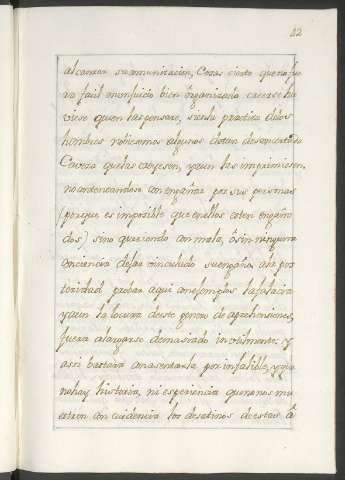 22
alcanzar su amunicion, Cosa cierta que no fu
era facil aun juicio bien organizado creerse hu
viese quien las pensase, si en la practica de los
hombres no biesemos algunos dotan desconcertado
Caveza que las creyesen, y aun las imprimiesen.
no contentandose con engañar por sus personas
(porque es imposible que en ellos esten engaña
dos) sino queriendo con mala, ô sin ninguna
conciencia dejar vinculado su engaño, ala pos
teridad probar aqui con exemplos la falacia
y aun la locura de este genero de aprehensiones,
fuera alargarse demasiado inutilmente; y
assi bastara con asentarla por infalible, y que
no hay historia, ni esperiencia que no nos mu
estren con evidencia los desatinos de estos â